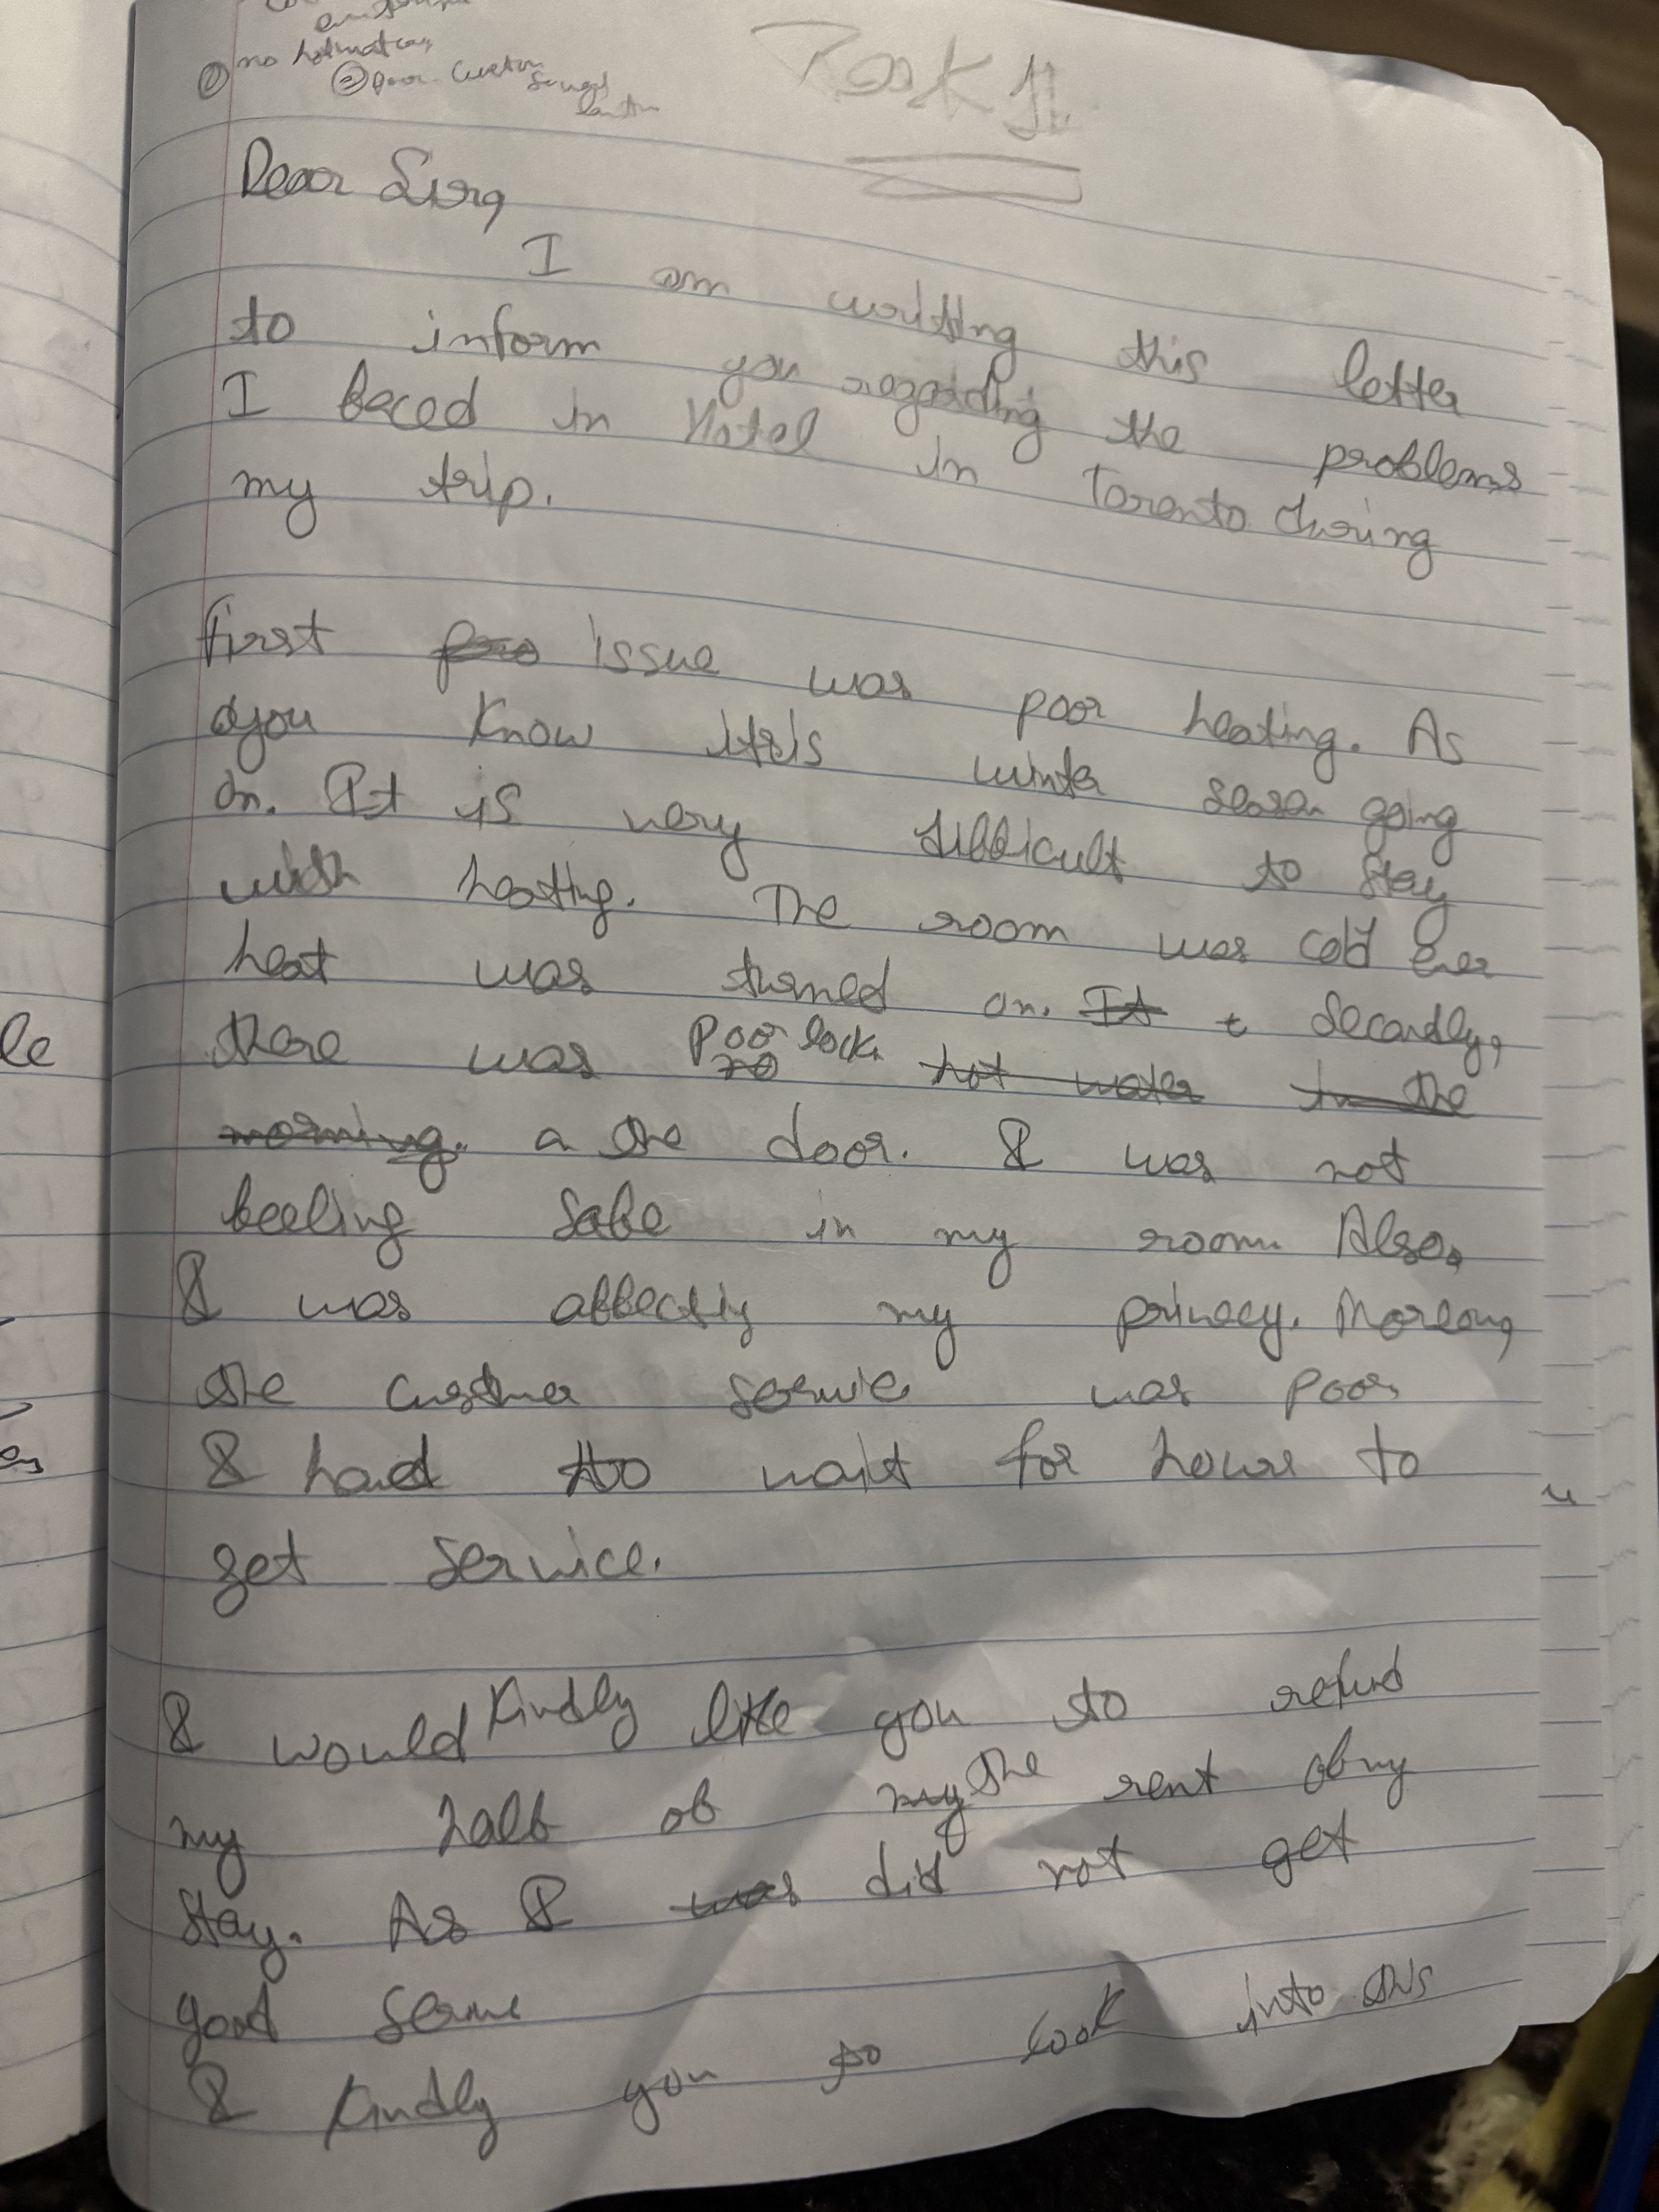 ① no hotwater
② poor Custom
Task 11
Dear Sirg
I am writting this letter
to inform you regarding the problems
I faced in Hotel in Toronto during
my trip.
first issue was poor heating. As
you know it is winter seasn going
on. It is very difficult to stay
with heating. The room was cold
heat was turned on. Secondly,
there was poor lock
a the door. I was not
feeling safe in my room. Also,
I was affecting my privacy.
the customer service was poor
I had to wait for hours to
get service.
I would kindly like you to refund
my half of the rent of my
stay. As I did not get
good
I kindly you to look into this
le